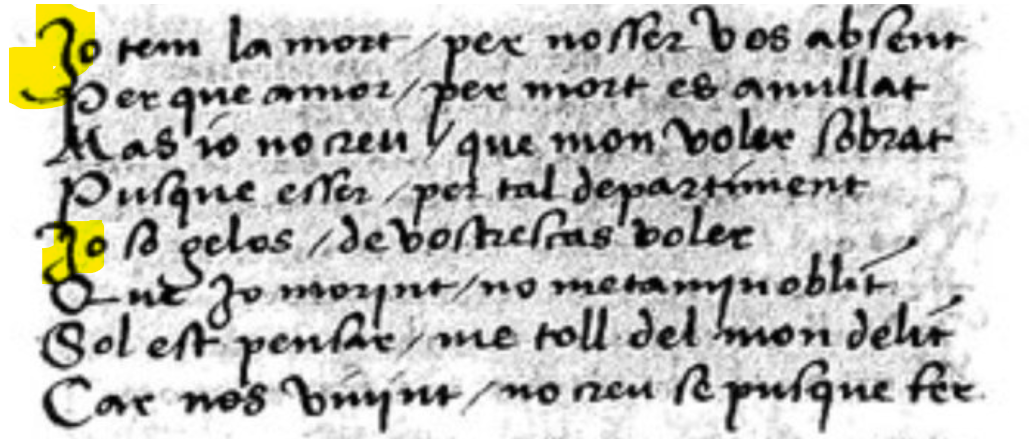 Jo tem la mort / per nosser vos absent
Per que amor / per mort es anullat
Mas io no creu / que mon voler sobrat
Pusque esser / per tal departiment
Jo so gelos / de vostrescas voler
Que Jo morint / no meta mi n oblit
Sol est pensar / me toll del mon delit
Car nos vivint / no creu se pusque fer